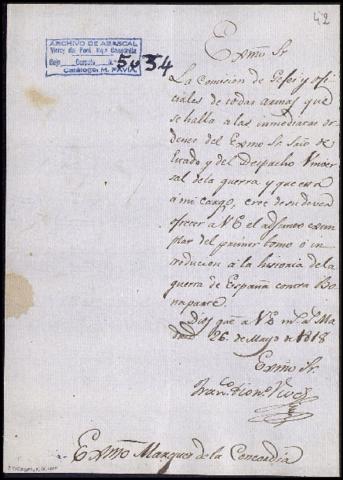 42
ARCHIVO DE ABASCAL
Virrey del Perú, Mqs Concordia
Caja Carpeta
Catálogo M. NAVIA
5034
Exmo Sr
La Comision de Gefes y ofi
ciales de todas armas, que
se halla a las inmediatas or
denes del Exmo Sr Srio de
Estado y del Despacho Univer
sal de la guerra y que está
á mi cargo, cree de su dever
ofrecer a VE el adjunto exem
plar del primer tomo ó in
troducion à la historia de la
guerra de España contra Bo
naparte.
Dios gue a VE ms as Ma
drid 26 de Mayo de 1818
Exmo Sr
Franco
Exmo Marques de la Concordia